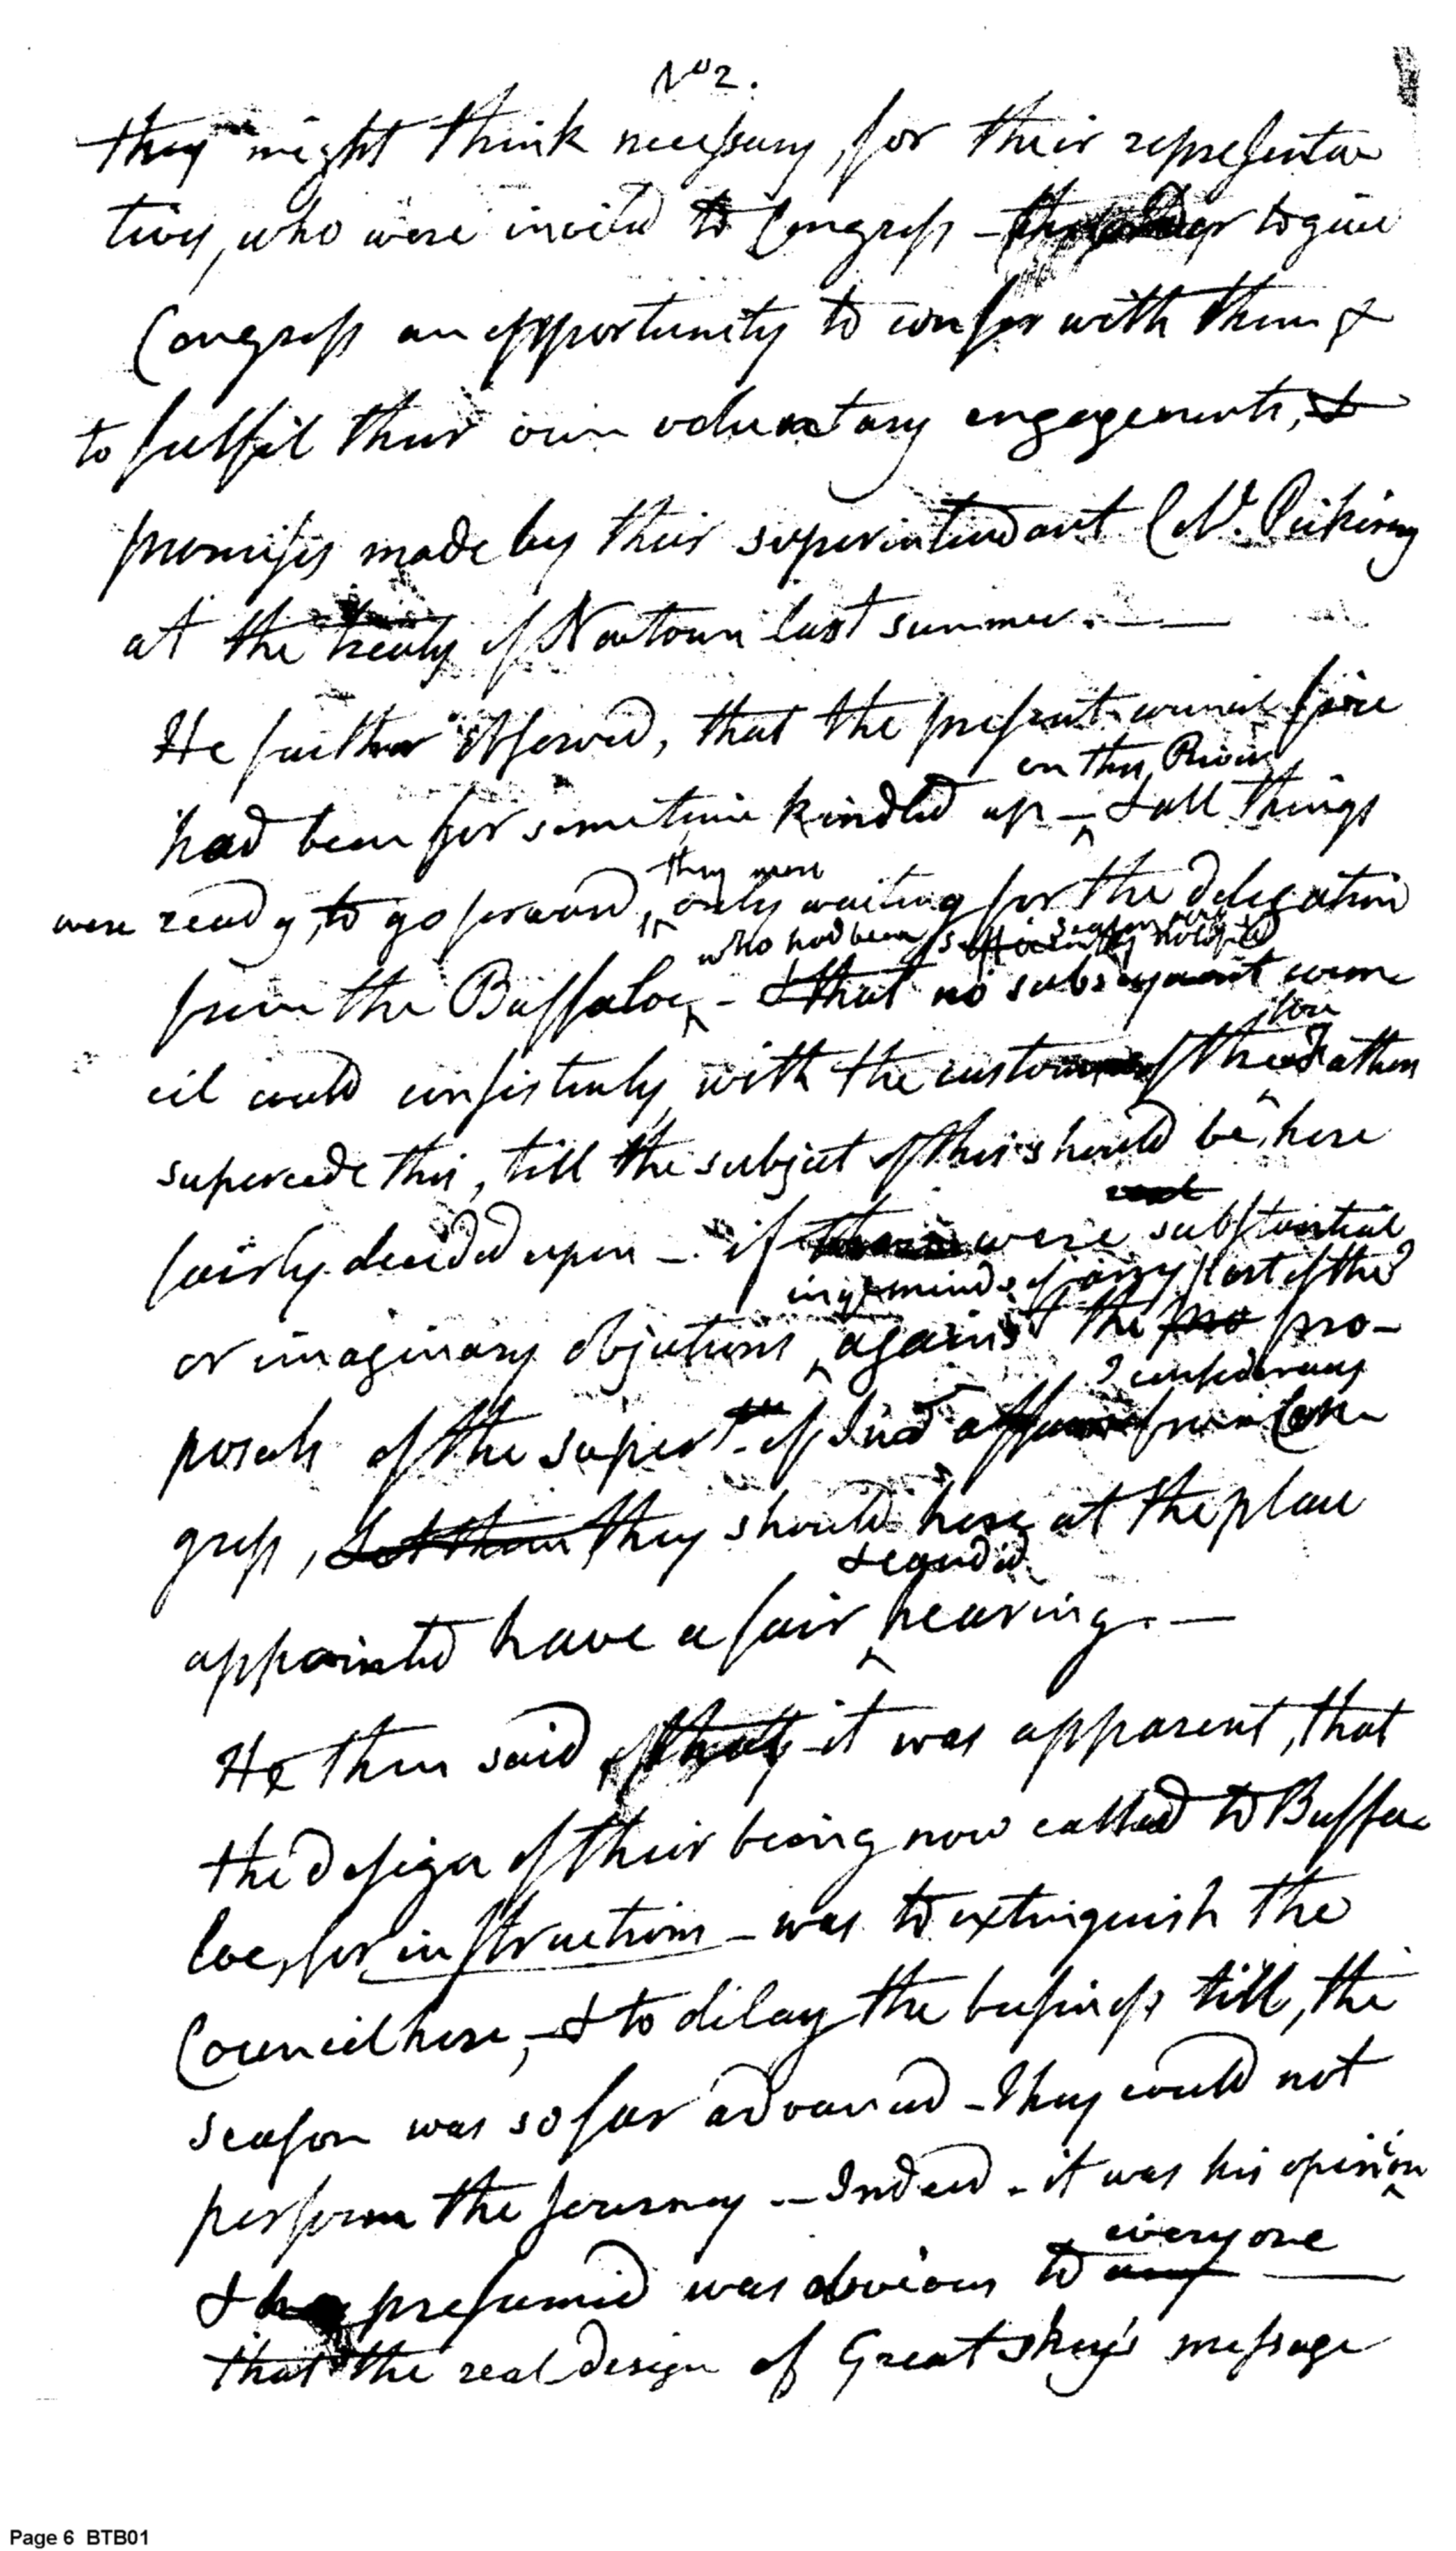 No 2.
they might think necessary, for their representa
tives, who were invited to Congress - to give
Congress an opportunity to confer with them &
to fulfil their own voluntary engagements, &
promises made by their superintendant Col. Pickering
at the treaty of Newtown last summer. —
He further observed, that the present council fire
on this River
had been for sometime kindled up - & all things
they were
were ready, to go forward, only waiting for the delegation
who had been sufficiently notified
from the Buffaloe, - & that no subsequent coun
cil could consistently with the customs of their Fathers
supercede this, till the subject of this should be, here
fairly decided upon - if were substantial
in ye minds of any part of the
or imaginary objections, against the pro pro-
posals of the supert. of Ind affairs from Con
gress, they should here at the place
& candid
appointed have a fair hearing. —
He then said, that it was apparent, that
the design of their being now called to Buffa
loe, for instructions - was to extinguish the
Council here, - & to delay the business till, the
season was so far advanced - they could not
perform the journey - Indeed - it was his opinion
everyone
& he presumed was obvious to any —
that the real design of Great sky's message
Page 6 BTB01